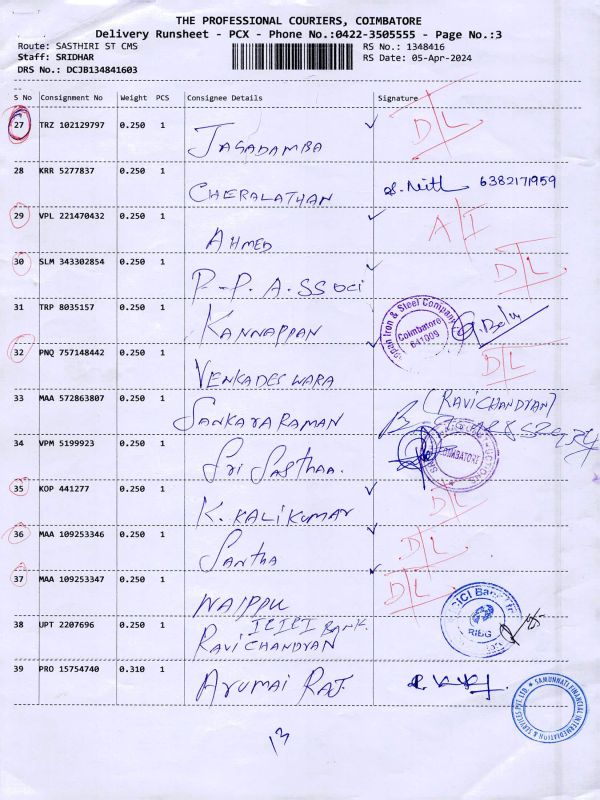 THE PROFESSIONAL COURIERS, COIMBATORE
Delivery Runsheet - PCX - Phone No.:0422-3505555 - Page No.:3
Route: SASTHIRI ST CMS RS No.: 1348416
Staff: SRIDHAR RS Date: 05-Apr-2024
DRS No.: DCJB134841603
S No Consignment No Weight PCS Consignee Details Signature
27 TRZ 102129797 0.250 1 JAGADAMBA D/L
28 KRR 5277837 0.250 1 CHERALATHAN 6382171959
29 VPL 221470432 0.250 1 AHMED A/I
30 SLM 343302854 0.250 1 P.P.A.SSOCI D/L
31 TRP 8035157 0.250 1 KANNAPPAN Iron & Steel Company Coimbatore 641009 G.Balu
32 PNQ 757148442 0.250 1 VENKADESWARA D/L
33 MAA 572863807 0.250 1 SANKARARAMAN (RAVICHANDYAN)
34 VPM 5199923 0.250 1 Sri SASTHAA. COIMBATORE
35 KOP 441277 0.250 1 K.KALIKUMAR D/L
36 MAA 109253346 0.250 1 SANTHA D/L
37 MAA 109253347 0.250 1 NAIPPU D/L
ICICI BANK. ICICI Bank RIBG
38 UPT 2207696 0.250 1 RAVICHANDYAN
39 PRO 15754740 0.310 1 ARUMAI RAJ.
SAMUNNATI FINANCIAL INTERMEDIATION & SERVICES PVT. LTD.
13